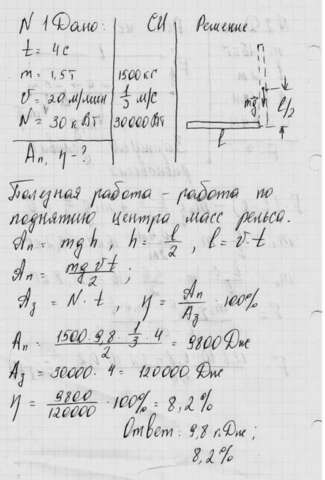 N 1 Дано: СИ Решение
t = 4с
m = 1,5т 1500кг
v = 20 м/мин 1/3 м/с
N = 30 кВт 30000Вт
Aп, η - ?
mg l/2
l
Полезная работа - работа по
поднятию центра масс рельса.
Aп = mgh, h = l/2, l = v · t
Aп = mgvt/2 ;
Aз = N · t, η = Aп/Aз · 100%
Aп = 1500 · 9,8 · 1/3 · 4 / 2 = 9800 Дж
Aз = 30000 · 4 = 120000 Дж
η = 9800/120000 · 100% = 8,2%
Ответ: 9,8 кДж;
8,2%